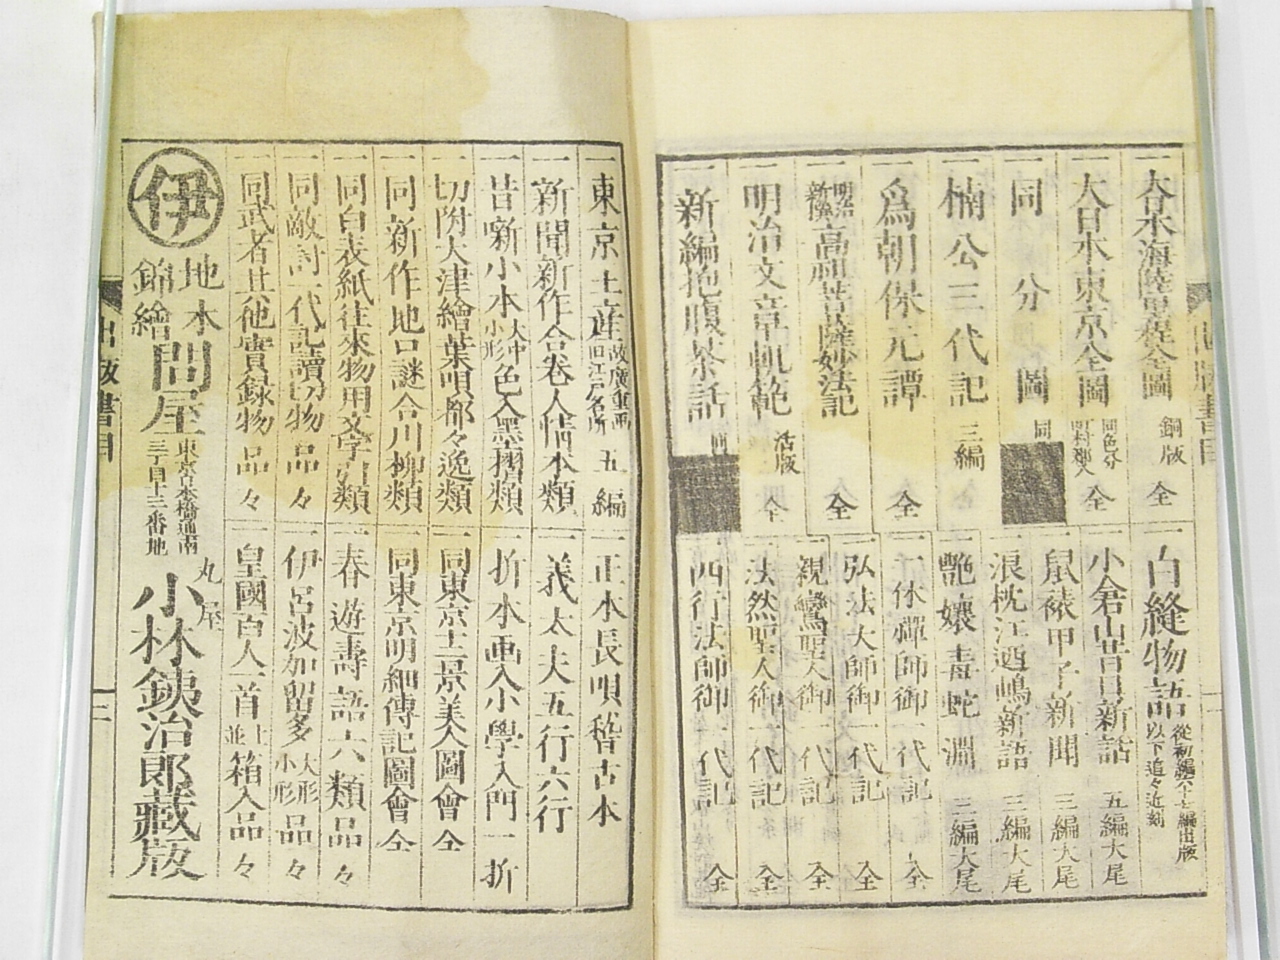 一大日本海陸里程全圖 銅版 全
一大日本東京全圖 同色分 町村區入 全
一同 分 圖 同
一楠公三代記 三編
一爲朝保元譚 全
一高祖菩薩妙法記 全
一明治文章軌範 活版 全
一新編抱腹茶話 同
一白縫物語 從初編六十七編出版 以下追々近刻
一小倉山昔日新話 五編大尾
一鼠裱甲子新聞 三編大尾
一浪枕江迺嶋新語 三編大尾
一艶孃毒蛇淵 三編大尾
一一休禪師御一代記 全
一弘法大師御一代記 全
一親鸞聖人御一代記 全
一法然聖人御一代記 全
一西行法師御一代記 全
出版書目
一東京土産 故廣重画 旧江戸名所 五編
一新聞新作合卷人情本類
一昔噺小本 大中小形 色入墨摺類
一切附大津繪葉唄都々逸類
一同新作地口謎合川柳類
一同白表紙往來物用文字引類
一同敵討一代記讀切物 品々
一同武者其他實録物 品々
一正本長唄稽古本
一義太夫五行六行
一折本画入小學入門 一折
一同東京土景美人圖會 全
一同東京明細傳記圖會 全
一春遊壽語六類品々
一伊呂波加留多 大形 小形 品々
一皇國百人一首 並上 箱入品々
伊
地本
錦繪
問屋
東京日本橋通南
三丁目十三番地
丸屋
小林鉄治郎藏版
出版書目
三